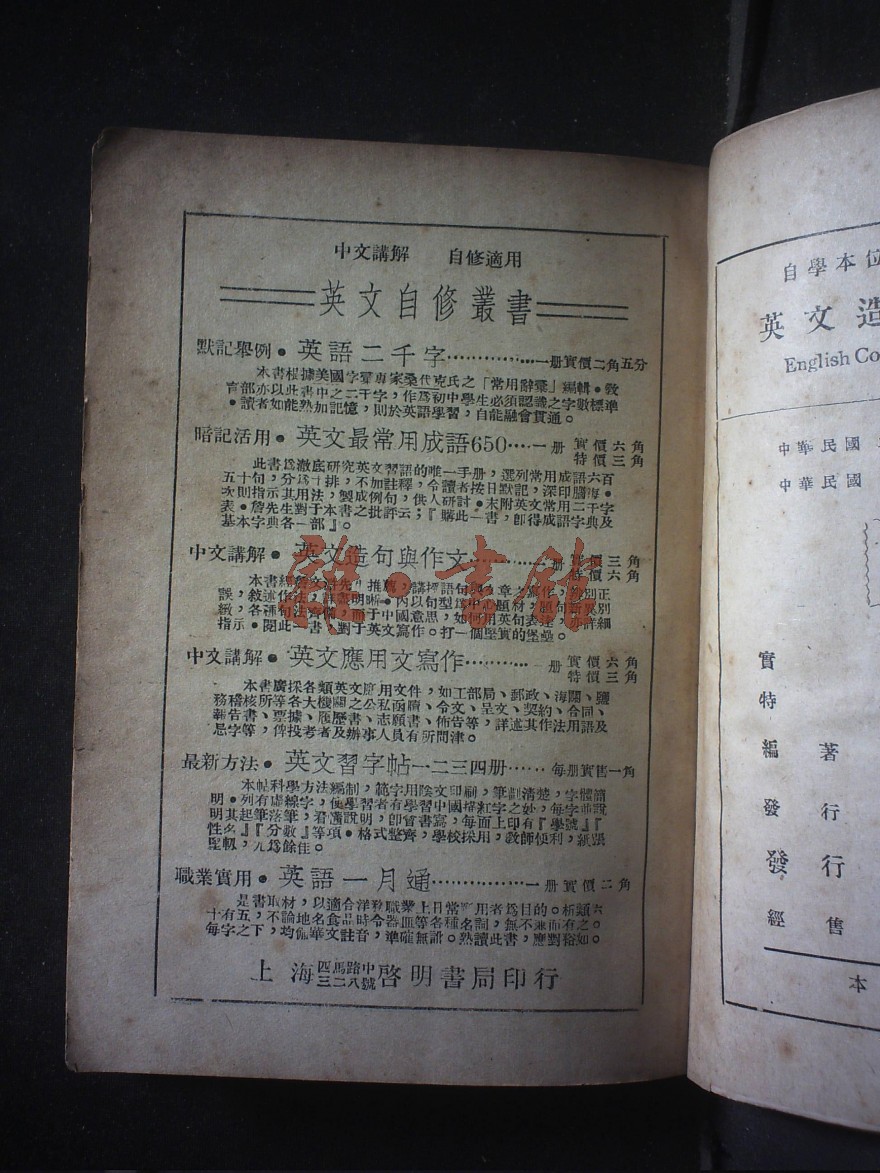 中文講解　自修適用
英文自修叢書
默記舉例・英語二千字…………一册實價二角五分
本書根據美國字彙專家桑代克氏之「常用辭彙」編輯・敎
育部亦以此書中之二千字，作爲初中學生必須認識之字數標準
・讀者如能熟加記憶，則於英語學習，自能融會貫通。
暗記活用・英文最常用成語650……一册 實價六角
特價三角
此書爲澈底研究英文習語的唯一手册，選列常用成語六百
五十句，分爲十排，不加註釋，令讀者按日默記，深印腦海・
次則指示其用法，製成例句，供人研討・末附英文常用二千字
表・詹先生對于本書之批評云；『購此一書，卽得成語字典及
基本字典各一部』。
中文講解・英文造句與作文………一册 價三角
價六角
本書經詹文滸先 推薦，講 語句與 章之寫作， 別正
誤，敘述作法，詳盡明晰・內以句型爲中心題材， 句 異別
緻，各種句法齊備，而于中國意思，如何用英句表達，亦詳細
指示・閱此一書，對于英文寫作。打一個堅實的堡壘。
中文講解・英文應用文寫作…………一册 實價六角
特價三角
本書廣採各類英文應用文件，如工部局、郵政、海關、鹽
務稽核所等各大機關之公私函牘、令文、呈文、契約、合同、
報告書、票據、履歷書、志願書、佈告等，詳述其作法用語及
思字等，俾投考者及辦事人員有所問津。
最新方法・英文習字帖一二三四册……每册實售一角
本帖科學方法編制，範字用陰文印刷，筆劃清楚，字體簡
明・列有虛線字，使學習者有學習中國描紅字之妙，每字並說
明其起筆落筆，看滿說明，卽實書寫，每面上印有『學號』『
性名』『分數』等項・格式整齊，學校採用，敎師便利，紙張
堅靱，尤爲餘佳。
職業實用・英語一月通……………一册實價二角
是書取材，以適合洋務職業上日常實用者爲目的。析類六
十有五，不論地名食品時令器皿等各種名詞，無不兼而有之。
每字之下，均備華文註音，準確無訛。熟讀此書，應對裕如。
上海四馬路中三二八號啓明書局印行
自學本位
英文造
English Co
中華民國
中華民國
實
特
編　著
發　行
發　行
經　售
本